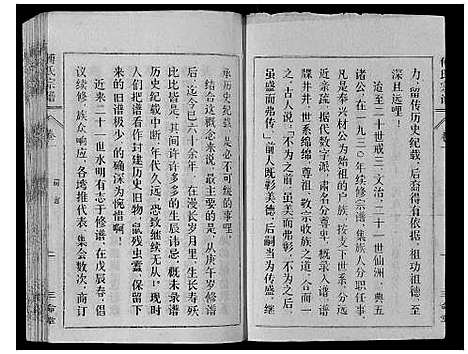 力，留传历史纪载，后裔得有依据，祖功祖德，
深且远哩！
迨至二十世戒三、文治、二十一世仙洲、典五
诸公，在一九三〇年续修宗谱，集族人分析房
凡是奉兴材公为始祖的户族，按支下世系，分远
近亲疏，据代数字派，肃名分尊卑，概录入谱，谱
牒井井，世系绵绵，尊祖敬宗收族之道，于以大
之。古人说：「不为之前，虽美而弗彰，不为之后，
虽盛而弗传」，前人既彰美德，后嗣当为传盛，继
承历史纪载，是必不可缓的事哩。
结合这概念来说，最主要的是，从庚午岁修谱
后，迄今已六十余年，在漫长岁月里，生寿殁
比比皆是，其间许许多多的生辰讳忌，概未录谱
历史纪载中断，年代久远，恐致继续无从！现时
人们把谱看作封建历史旧物，鼠残虫蠹，保留下
的旧谱极少，的确深为惋惜啊！
近来二十一世水明有志于修谱，在戊辰春，倡
议续修，族众响应，各塆推代表，集会数次，商订
傅氏宗谱
卷
三
堂